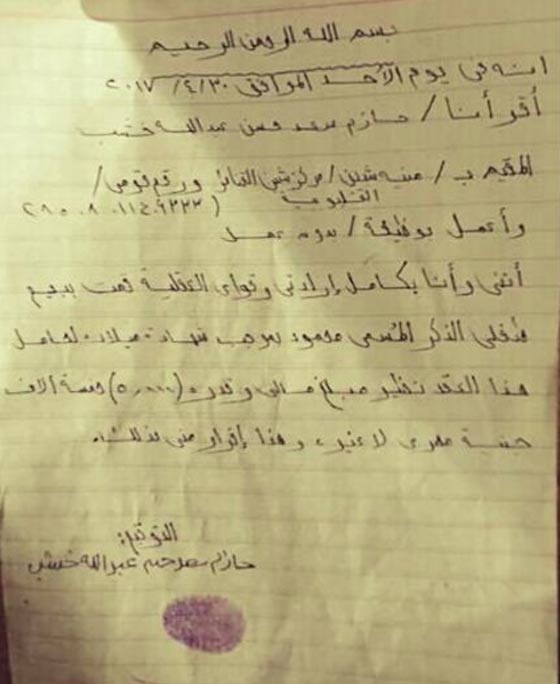 بسم الله الرحمن الرحيم
انه في يوم الأحد الموافق ٢٠١٧/٤/٣٠
أقر أنا / حازم سعد حسن عبدالله خشب
المقيم ب / منية شبين / مركز شبين القناطر ورقم قومى /
القليوبية
وأعمل بوظيفة / بدون عمل
أننى وأنا بكامل إرادتى وقواى العقلية قمت ببيع
طفلى الذكر المُسمى محمود بموجب شهادة ميلاده لحامل
هذا العقد نظير مبلغ مالى وقدره (٥٠٠٠) خمسة الاف
جنية مصرى لا غير، وهذا إقرار منى بذلك.
التوقيع:
حازم سعد حسن عبدالله خشب